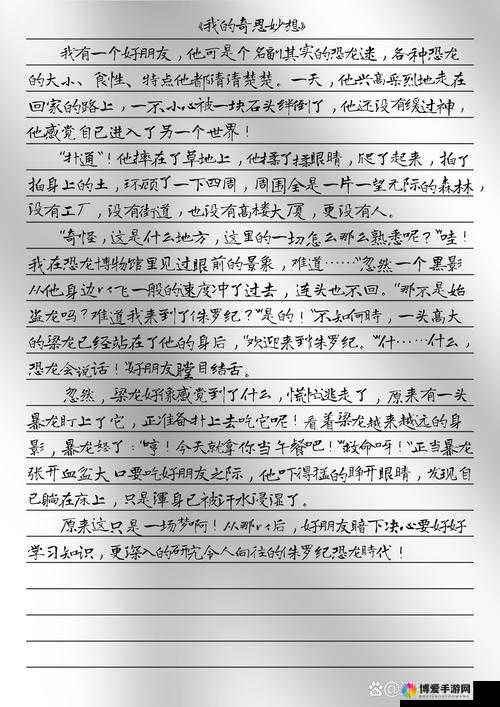 《我的奇思妙想》
我有一个好朋友，他可是个名副其实的恐龙迷，各种恐龙
的大小、食性、特点他都清清楚楚。一天，他兴高采烈地走在
回家的路上，一不小心被一块石头绊倒了，他还没有缓过神，
他感觉自己进入了另一个世界！
“扑通”！他摔在了草地上，他揉了揉眼睛，爬了起来，拍了
拍身上的土，环顾了一下四周，周围全是一片一望无际的森林，
没有工厂，没有街道，也没有高楼大厦，更没有人。
“奇怪，这是什么地方，这里的一切怎么那么熟悉呢？”哇！
我在恐龙博物馆里见过眼前的景象，难道……“忽然一个黑影
从他身边以飞一般的速度冲了过去，连头也不回。“那不是始
盗龙吗？难道我来到了侏罗纪？”是的！“不知何時，一头高大
的梁龙已经站在了他的身后，“欢迎来到侏罗纪。“什……什么，
恐龙会说话！“好朋友瞠目结舌。
忽然，梁龙好像感觉到了什么，慌忙逃走了，原来有一头
暴龙盯上了它，正准备扑上去吃它呢！看着梁龙越来越远的身
影，暴龙怒了：“哼！今天就拿你当午餐吧！”“救命呀！“正当暴龙
张开血盆大口要吃好朋友之际，他吓得猛的睁开眼睛，发现自
己躺在床上，只是渾身已被汗水浸湿了。
原来这只是一场梦啊！从那以后，好朋友暗下决心要好好
学习知识，更深入的研究令人向往的侏罗纪恐龙時代！
博爱手游网